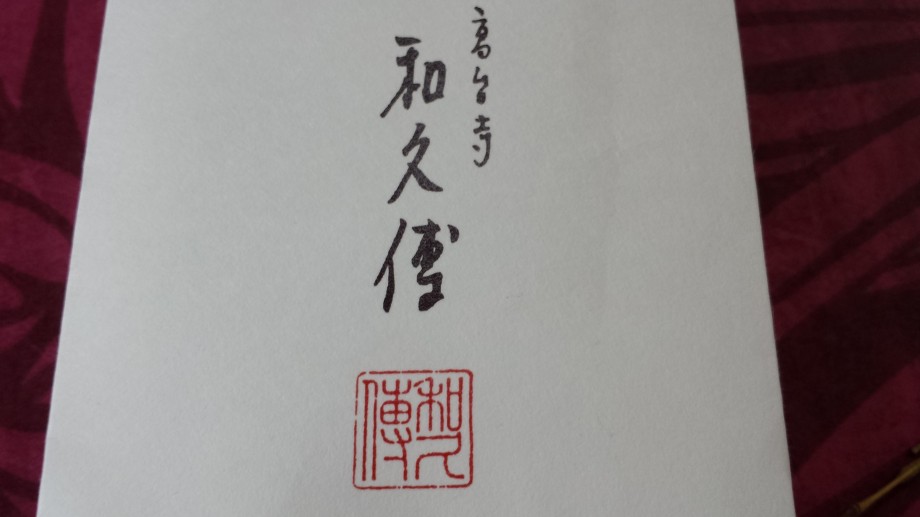 高台寺
和久傳
和久傳